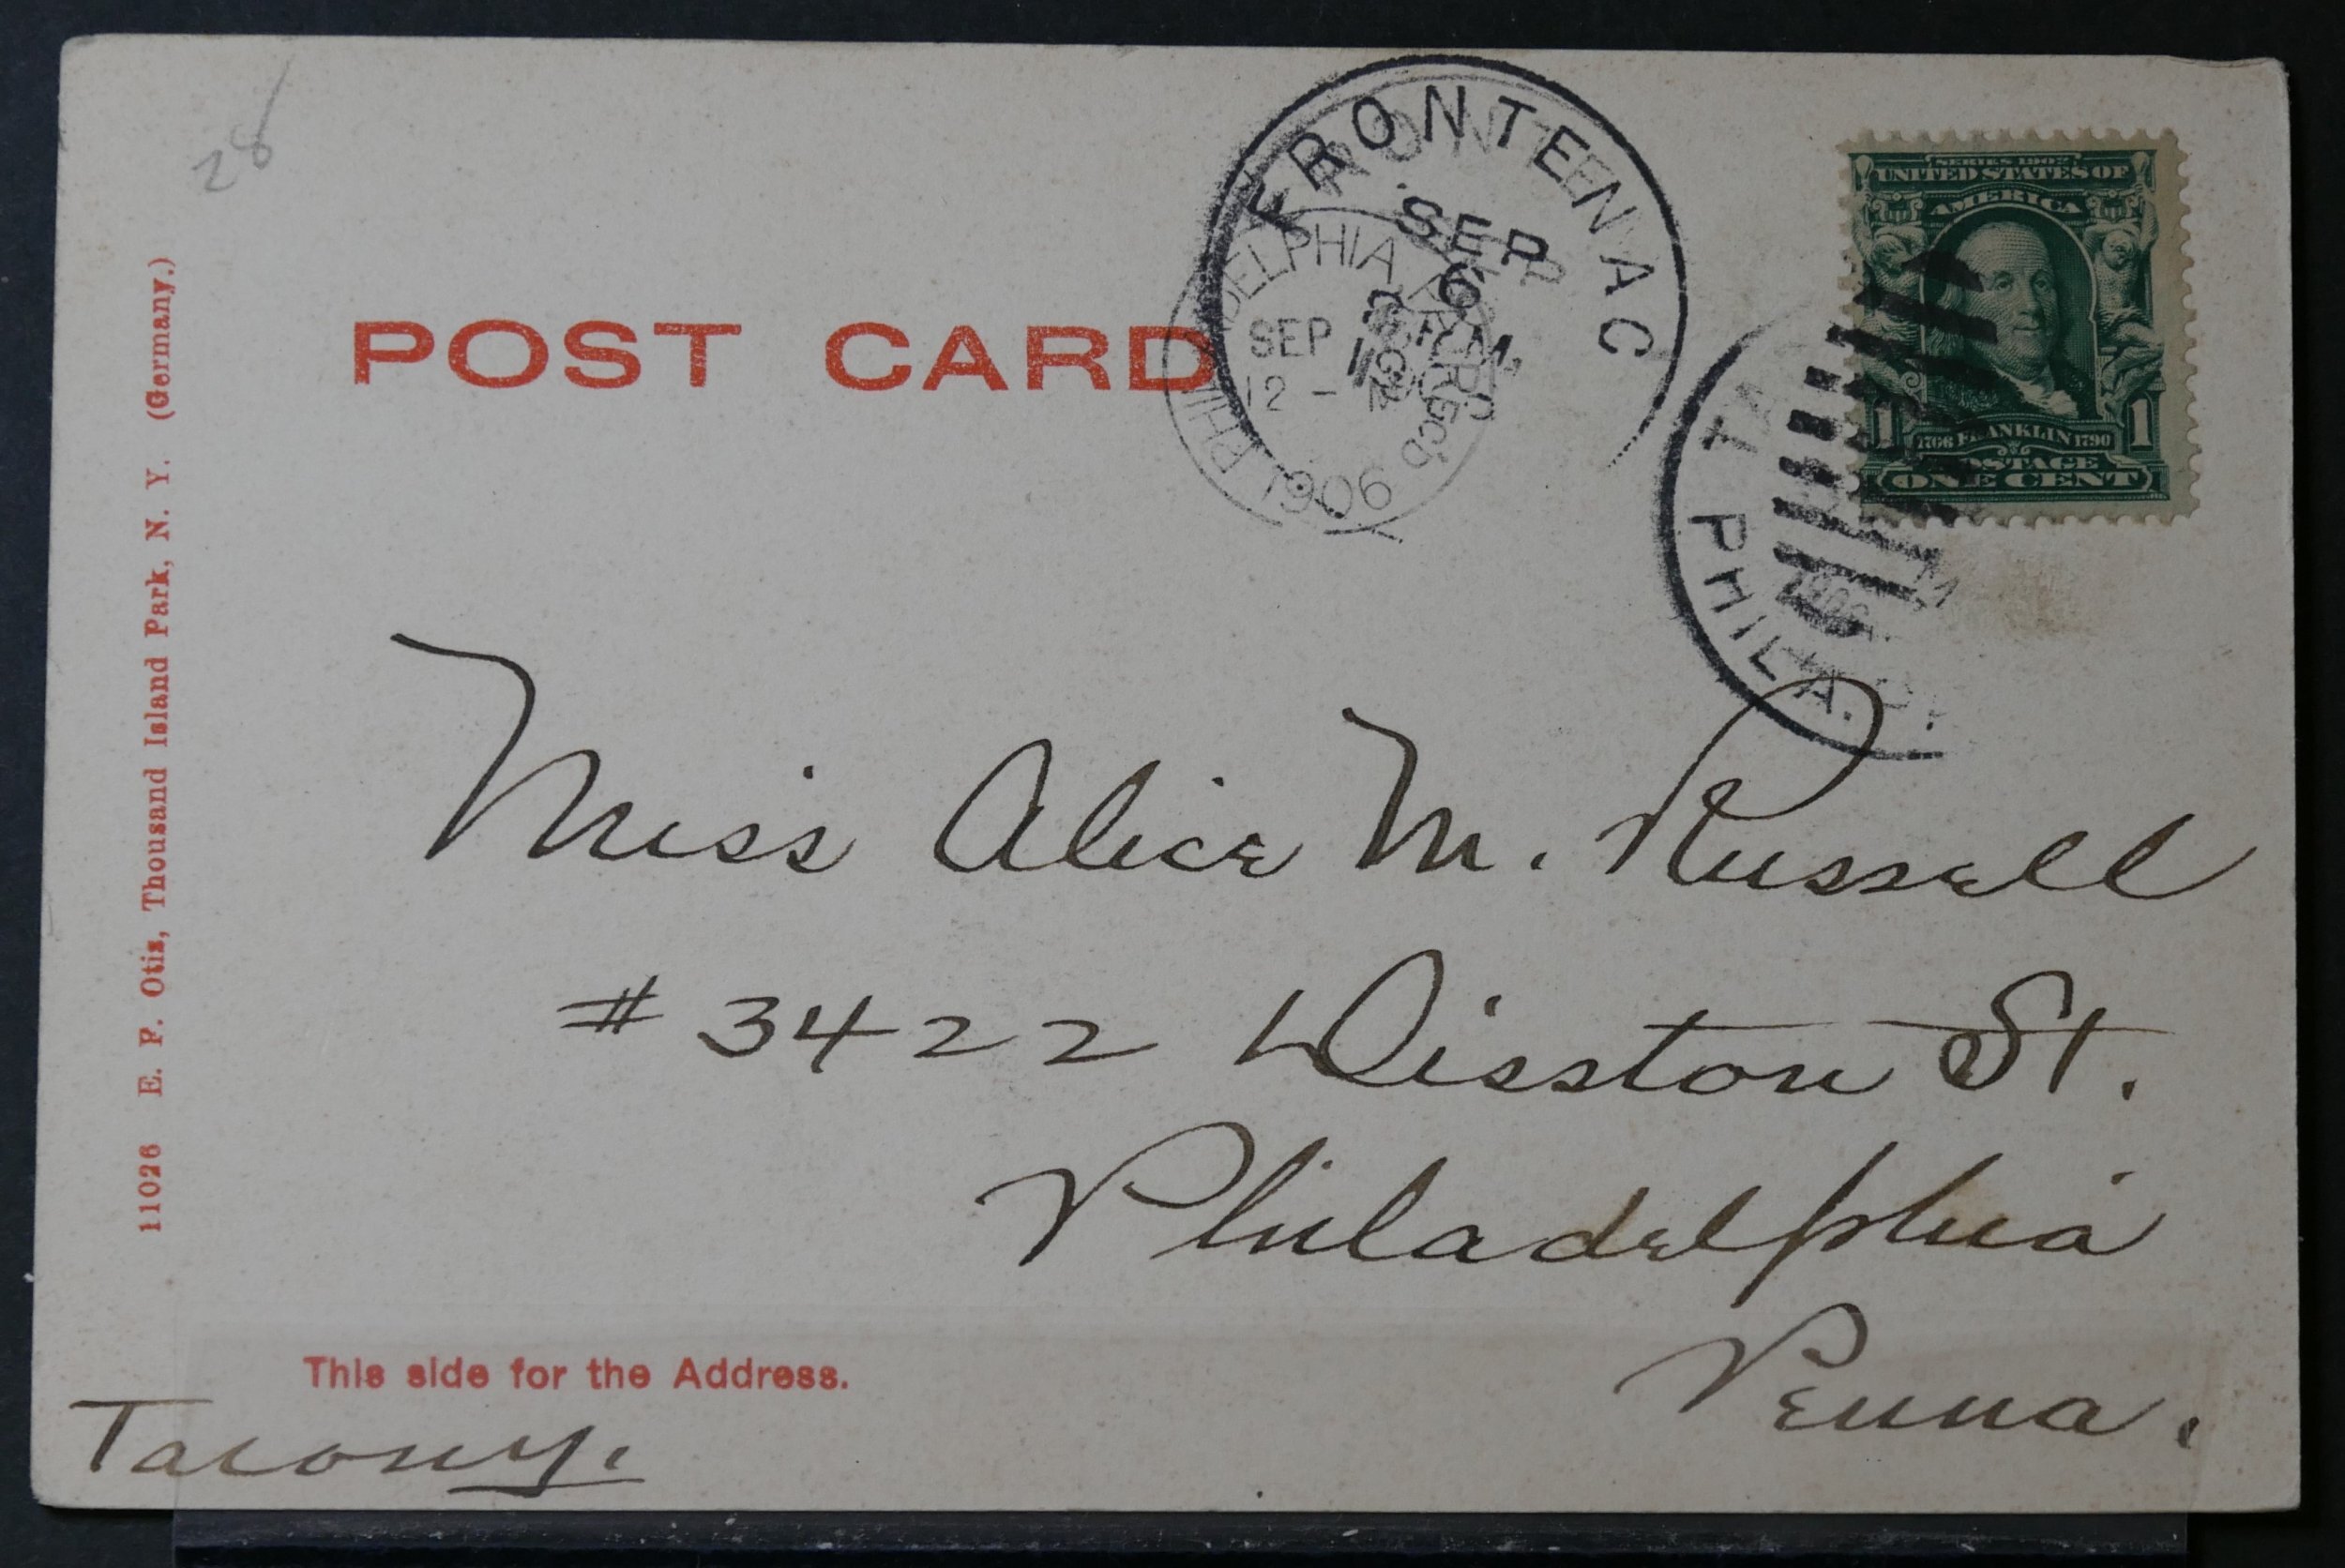 28
FRONTENAC
SEP
6
PHILADELPHIA, PA.
SEP
12 -
REC'D
1906
SERIES 1902
UNITED STATES OF
AMERICA
1 1
1706 FRANKLIN 1790
POSTAGE
ONE CENT
PHILA.
POST CARD
11026 E. P. Otis, Thousand Island Park, N. Y. (Germany.)
Miss Alice M. Russell
# 3422 Disston St.
Philadelphia
Penna.
This side for the Address.
Tacony.